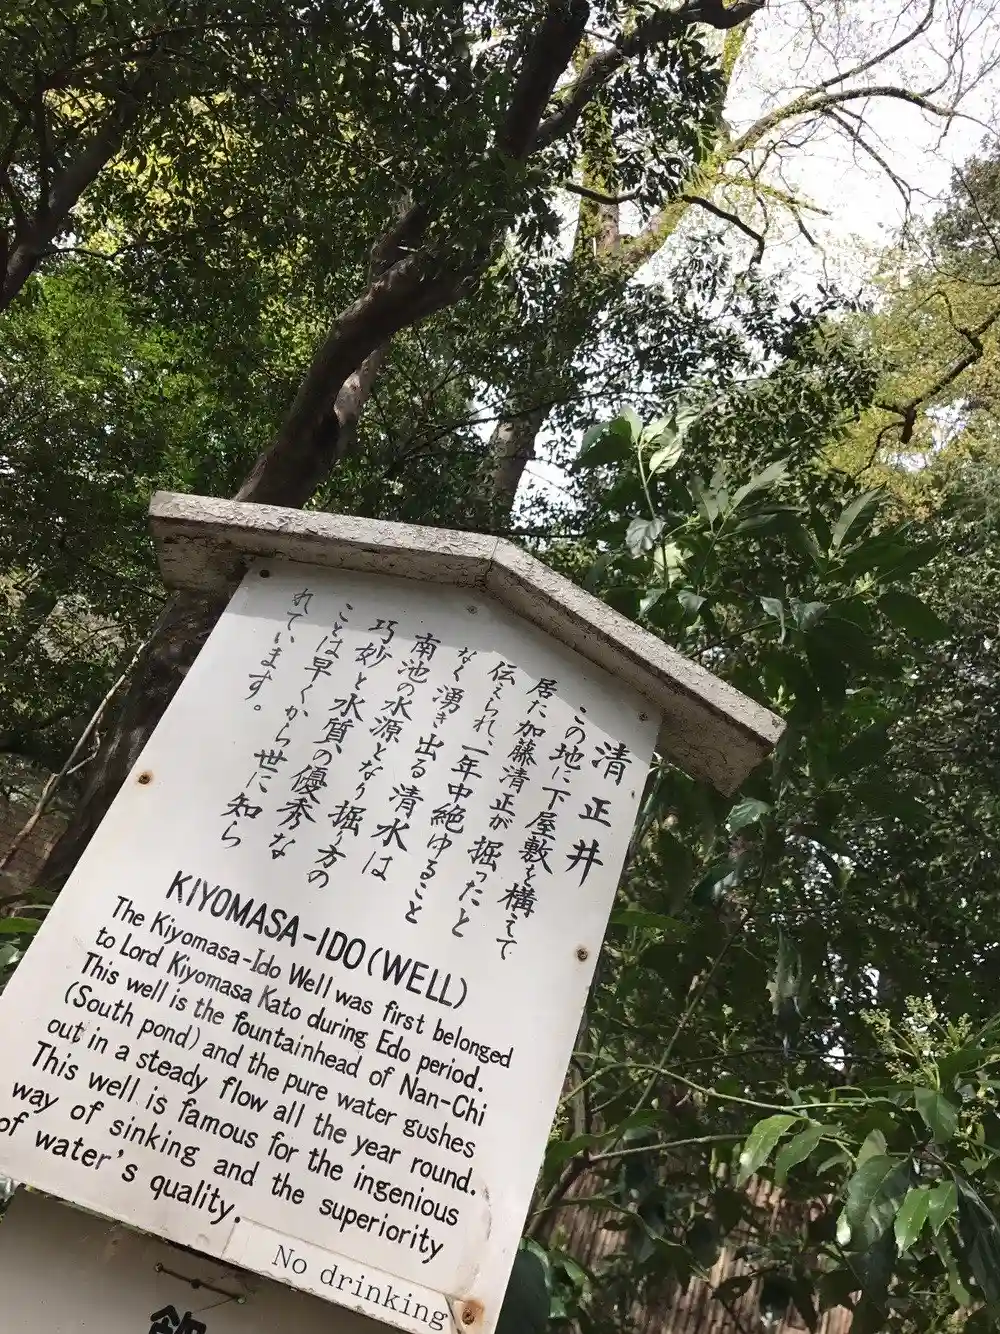 清正井
この地に下屋敷を構えて
居た加藤清正が掘ったと
伝えられ、一年中絶ゆること
なく湧き出る清水は
南池の水源となり掘り方の
巧妙と水質の優秀な
ことは早くから世に知ら
れています。
KIYOMASA-IDO(WELL)
The Kiyomasa-Ido Well was first belonged
to Lord Kiyomasa Kato during Edo period.
This well is the fountainhead of Nan-Chi
(South pond) and the pure water gushes
out in a steady flow all the year round.
This well is famous for the ingenious
way of sinking and the superiority
of water's quality.
No drinking